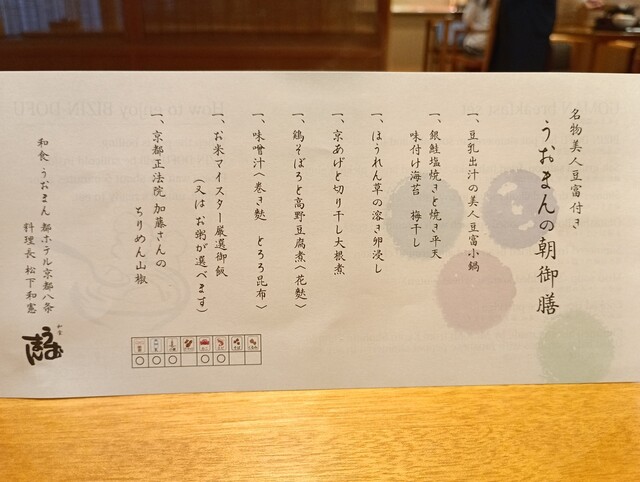 名物美人豆富付き
うおまんの朝御膳
一、豆乳出汁の美人豆富小鍋
一、銀鮭塩焼きと焼き平天
味付け海苔　梅干し
一、ほうれん草の溶き卵浸し
一、京あげと切り干し大根煮
一、鶏そぼろと高野豆腐煮〈花麩〉
一、味噌汁〈巻き麩　とろろ昆布〉
一、お米マイスター厳選御飯
（又は お粥が選べます）
一、京都正法院 加藤さんの
ちりめん山椒
和食 うおまん 都ホテル京都八条
料理長 松下和憲
和食
うおまん
How to enjoy BIZIN TOFU